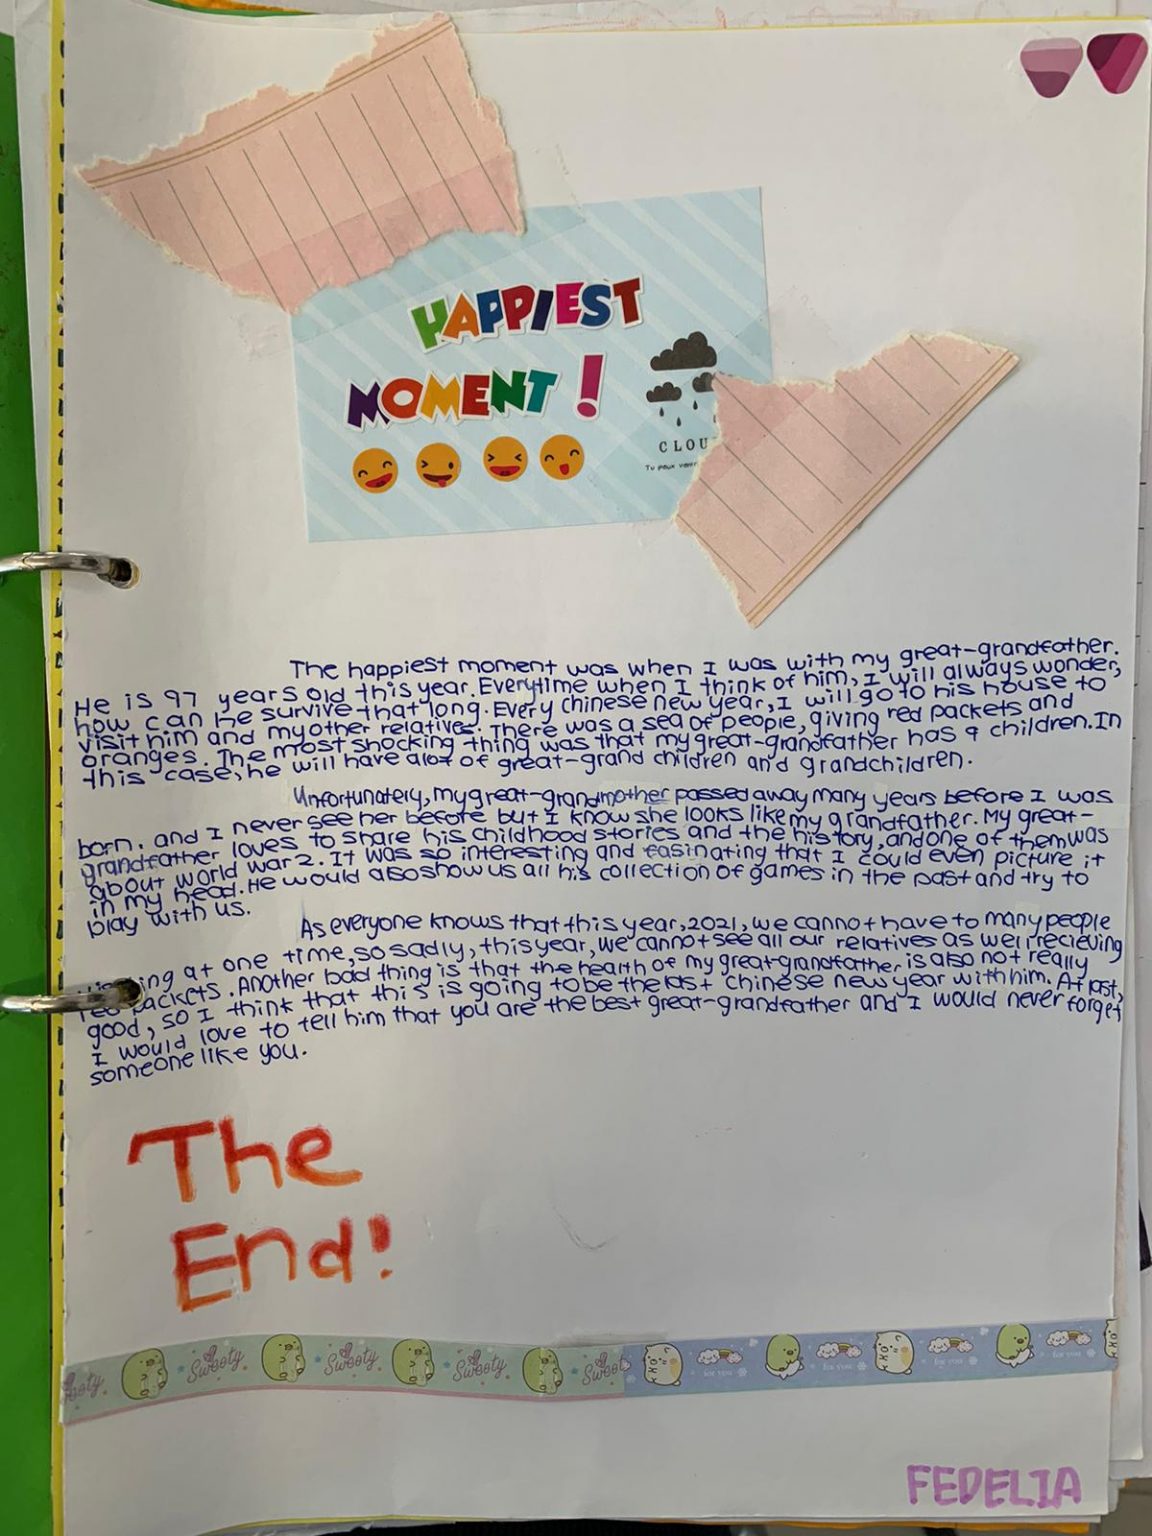 HAPPIEST
MOMENT!
CLOU
Tu peux venir
The happiest moment was when I was with my great-grandfather.
He is 97 years old this year. Everytime when I think of him, I will always wonder,
how can he survive that long. Every chinese new year, I will go to his house to
visit him and my other relatives. There was a sea of people, giving red packets and
oranges. The most shocking thing was that my great-grandfather has 9 children. In
this case, he will have alot of great-grand children and grandchildren.
Unfortunately, my great-grandmother passed away many years before I was
born. and I never see her before but I know she looks like my grandfather. My great-
grandfather loves to share his childhood stories and the history, and one of them was
about world war 2. It was so interesting and fasinating that I could even picture it
in my head. He would also show us all his collection of games in the past and try to
play with us.
As everyone knows that this year, 2021, we cannot have to many people
at one time, so sadly, this year, we cannot see all our relatives as well recieving
red packets. Another bad thing is that the health of my great-grandfather is also not really
good, so I think that this is going to be the last chinese new year with him. At last,
I would love to tell him that you are the best great-grandfather and I would never forget
someone like you.
The
End!
Swooty Swooty Swooty Swoot for you for you for you
FEDELIA